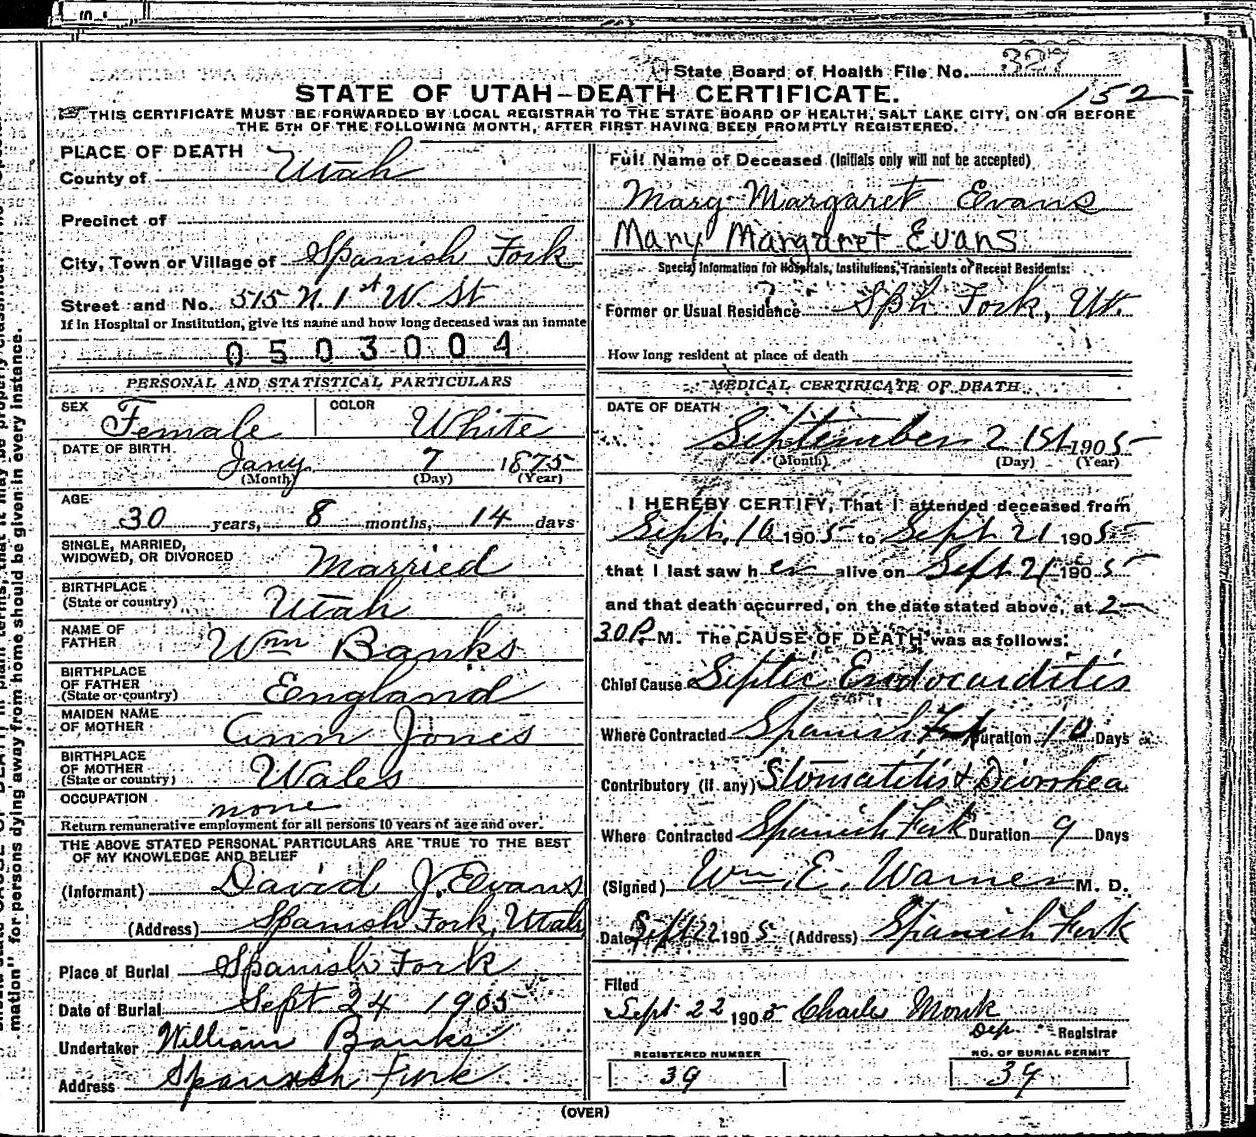 State Board of Health File No. 327
152
STATE OF UTAH—DEATH CERTIFICATE.
THIS CERTIFICATE MUST BE FORWARDED BY LOCAL REGISTRAR TO THE STATE BOARD OF HEALTH, SALT LAKE CITY, ON OR BEFORE
THE 5TH OF THE FOLLOWING MONTH, AFTER FIRST HAVING BEEN PROMPTLY REGISTERED.
PLACE OF DEATH
County of Utah
Precinct of
City, Town or Village of Spanish Fork
Street and No. 515 N 1st W St
If in Hospital or Institution, give its name and how long deceased was an inmate
0503004
PERSONAL AND STATISTICAL PARTICULARS
SEX Female COLOR White
DATE OF BIRTH Jany 7 1875
(Month) (Day) (Year)
AGE 30 years, 8 months, 14 days
SINGLE, MARRIED,
WIDOWED, OR DIVORCED Married
BIRTHPLACE
(State or country) Utah
NAME OF
FATHER Wm Banks
BIRTHPLACE
OF FATHER
(State or country) Eengland
MAIDEN NAME
OF MOTHER Ann Jones
BIRTHPLACE
OF MOTHER
(State or country) Wales
OCCUPATION none
Return remunerative employment for all persons 10 years of age and over.
THE ABOVE STATED PERSONAL PARTICULARS ARE TRUE TO THE BEST
OF MY KNOWLEDGE AND BELIEF
(Informant) David J. Evans
(Address) Spanish Fork, Utah
Place of Burial Spanish Fork
Date of Burial Sept 24 1905
Undertaker William Banks
Address Spanish Fork.
Full Name of Deceased (Initials only will not be accepted)
Mary Margaret Evans
Mary Margaret Evans
Special Information for Hospitals, Institutions, Transients or Recent Residents:
Former or Usual Residence ? Sph Fork, Ut.
How long resident at place of death
MEDICAL CERTIFICATE OF DEATH
DATE OF DEATH
September 21st 1905
(Month) (Day) (Year)
I HEREBY CERTIFY, That I attended deceased from
Sept. 10 1905 to Sept. 21 1905
that I last saw her alive on Sept 21 1905
and that death occurred, on the date stated above, at 2-
30 P. M. The CAUSE OF DEATH was as follows:
Chief Cause Septic Endocarditis
Where Contracted Spanish Fork Duration 10 Days
Contributory (if any) Stomatitis & Diorrhea
Where Contracted Spanish Fork Duration 9 Days
(Signed) Wm. E. Warner M. D.
Date Sept 22 1905 (Address) Spanish Fork
Filed
Sept 22 1905 Charles Monk
Dep. Registrar
REGISTERED NUMBER
39
NO. OF BURIAL PERMIT
39
(OVER)
mation" for persons dying away from home should be given in every instance.